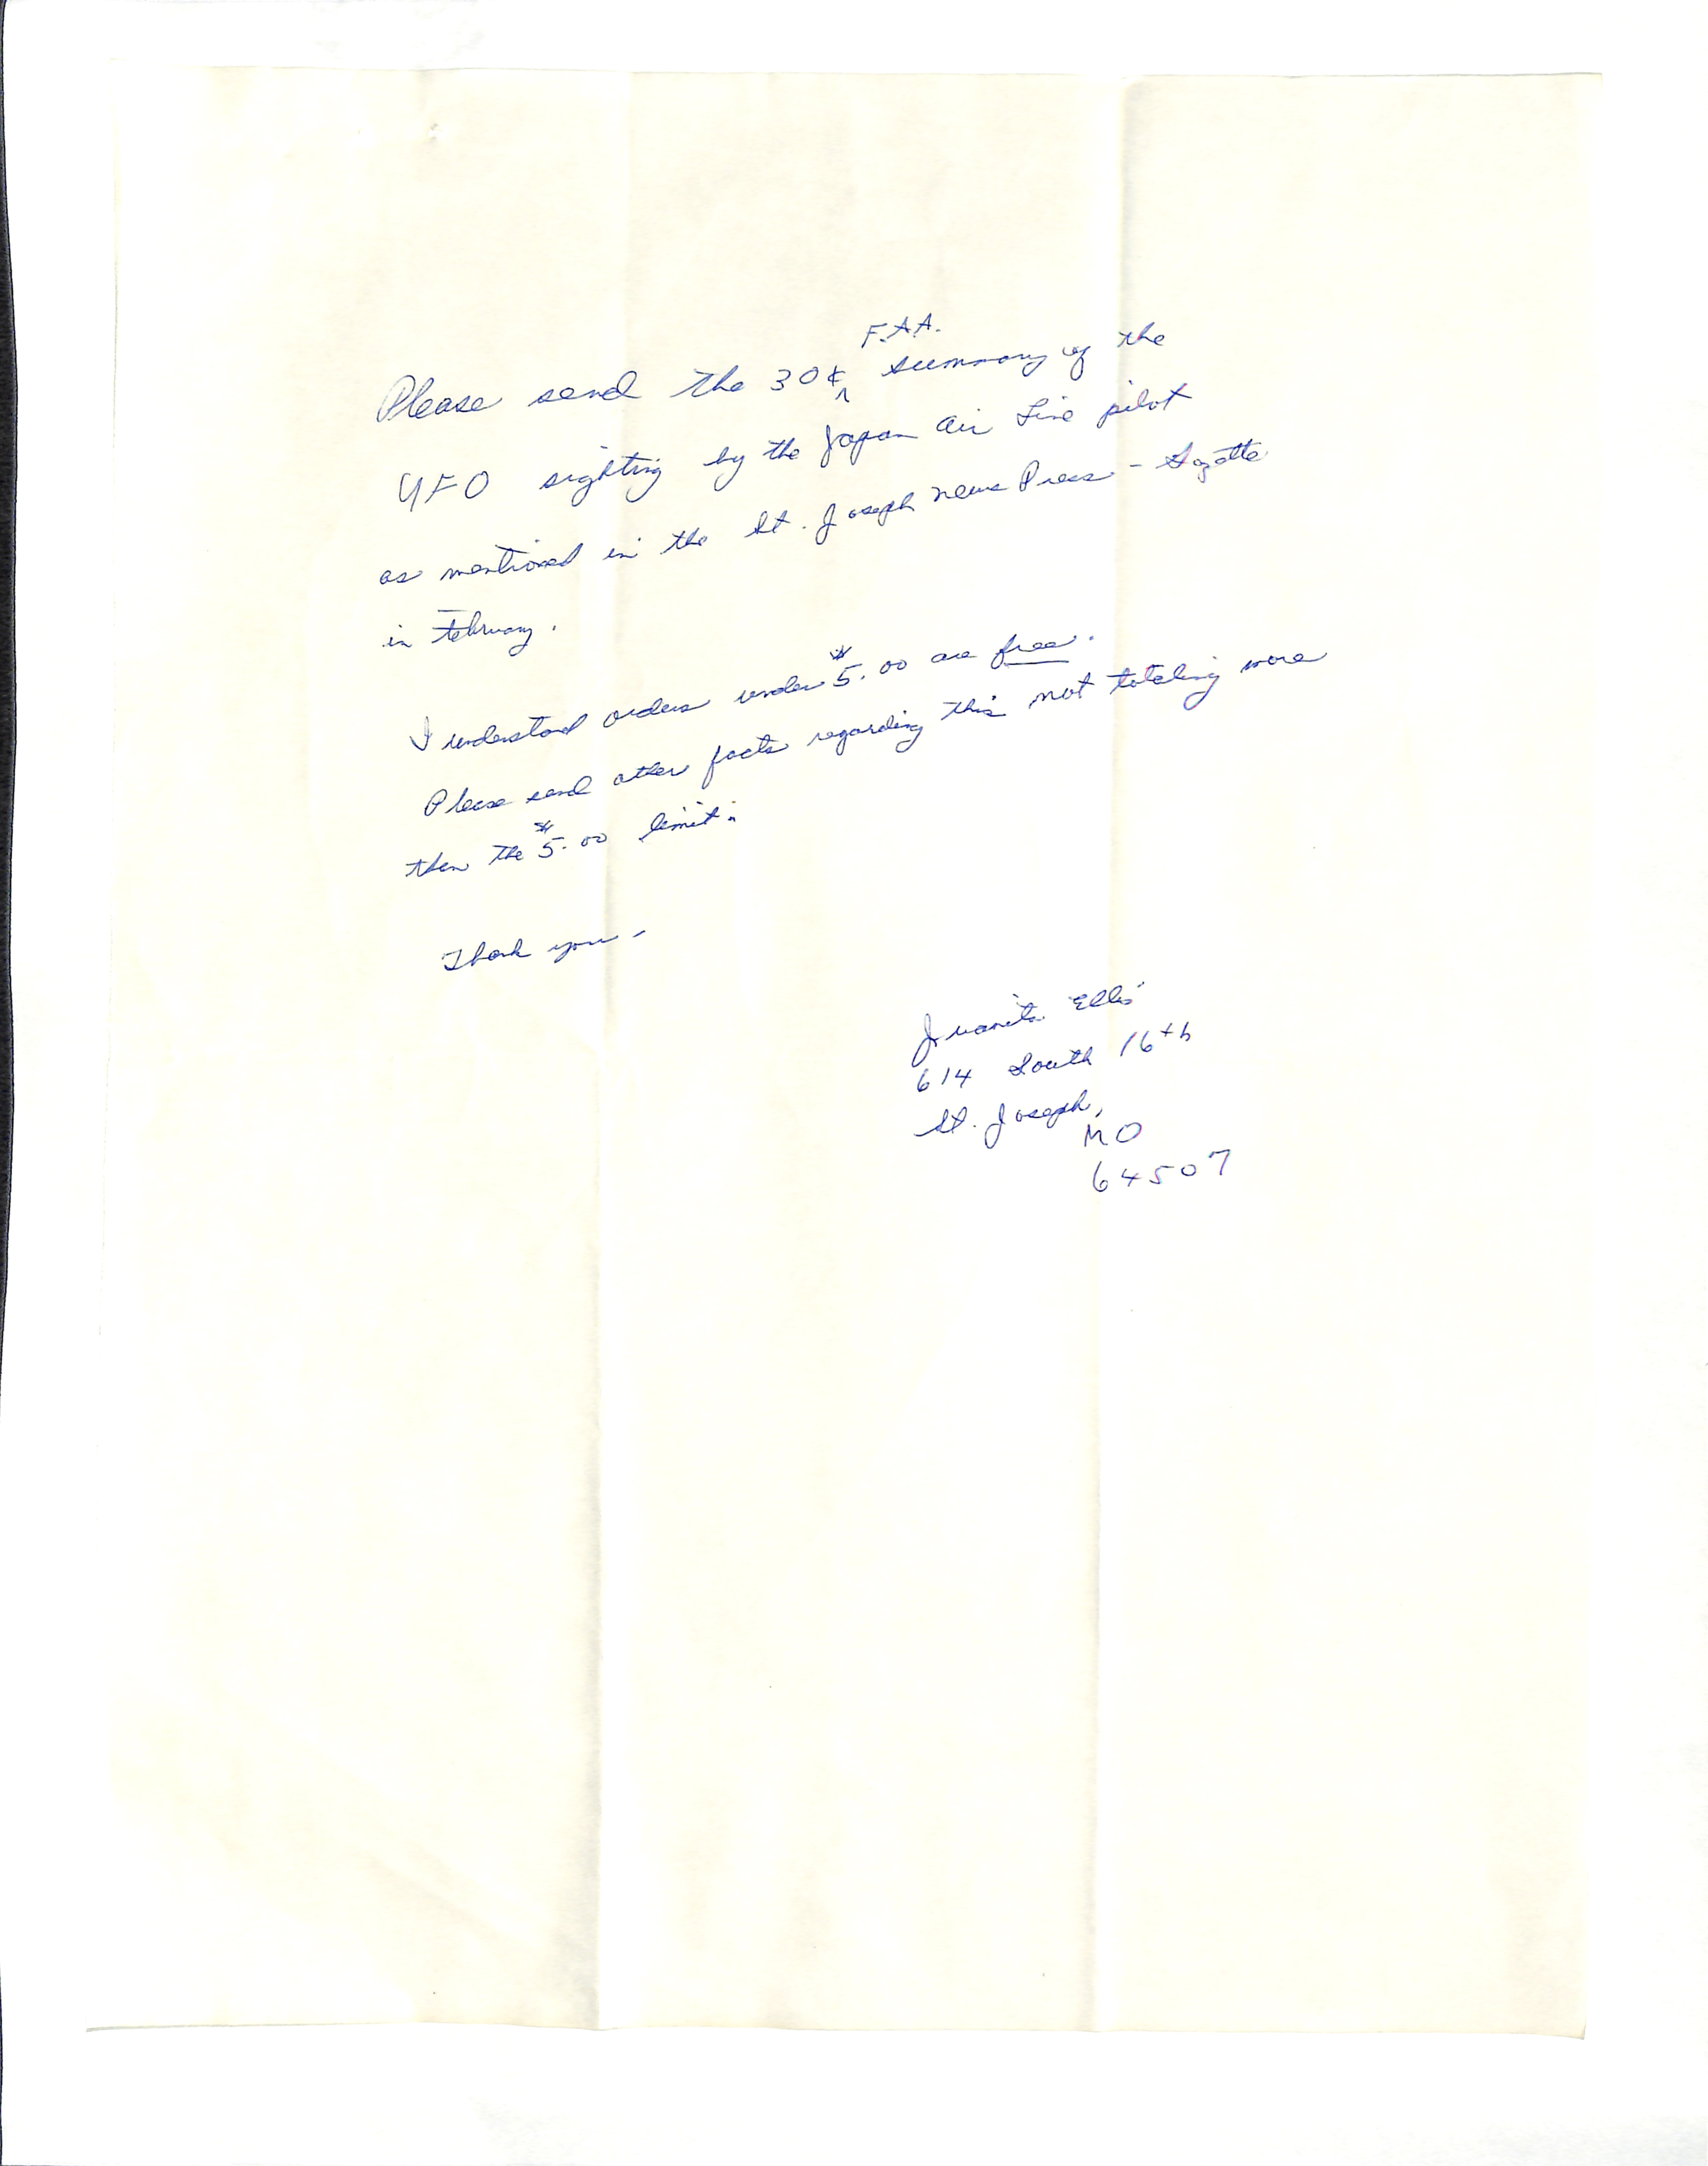 Please send the 30¢ F.A.A. summary of the
UFO sighting by the Japan Air Line pilot
as mentioned in the St. Joseph News Press - Gazette
in February.
I understand orders under $5.00 are free.
Please send other facts regarding this not totaling more
then the $5.00 limit.
Thank you -
Juanita Ellis
614 South 16th
St. Joseph,
MO
64507